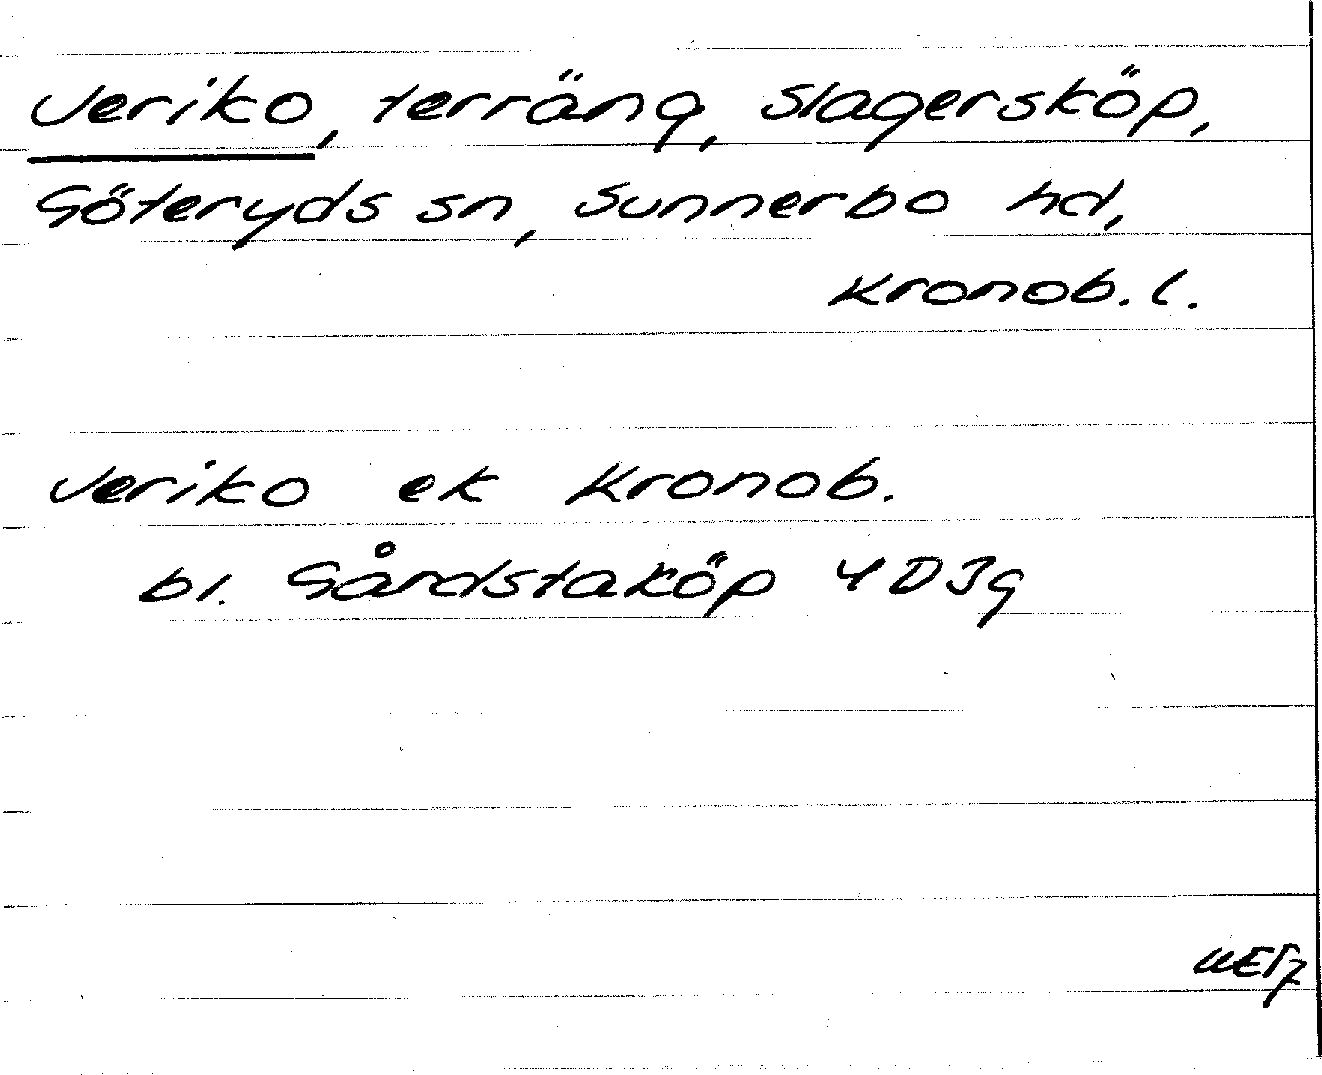 Jeriko, terräng, Slagersköp,
Göteryds sn, Sunnerbo hd,
Kronob. l.
Jeriko ek Kronob.
bl. Gårdstaköp 4D3g